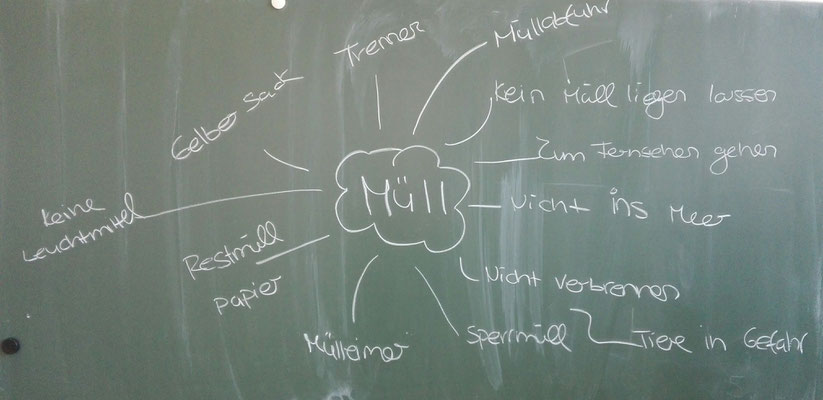 Müllabfuhr
Trennen
Kein Müll liegen lassen
Gelber Sack
Zum Fernsehen gehen
Müll
Nicht ins Meer
keine
Leuchtmittel
Restmüll
papier
Nicht verbrennen
Mülleimer
Sperrmüll
Tiere in Gefahr